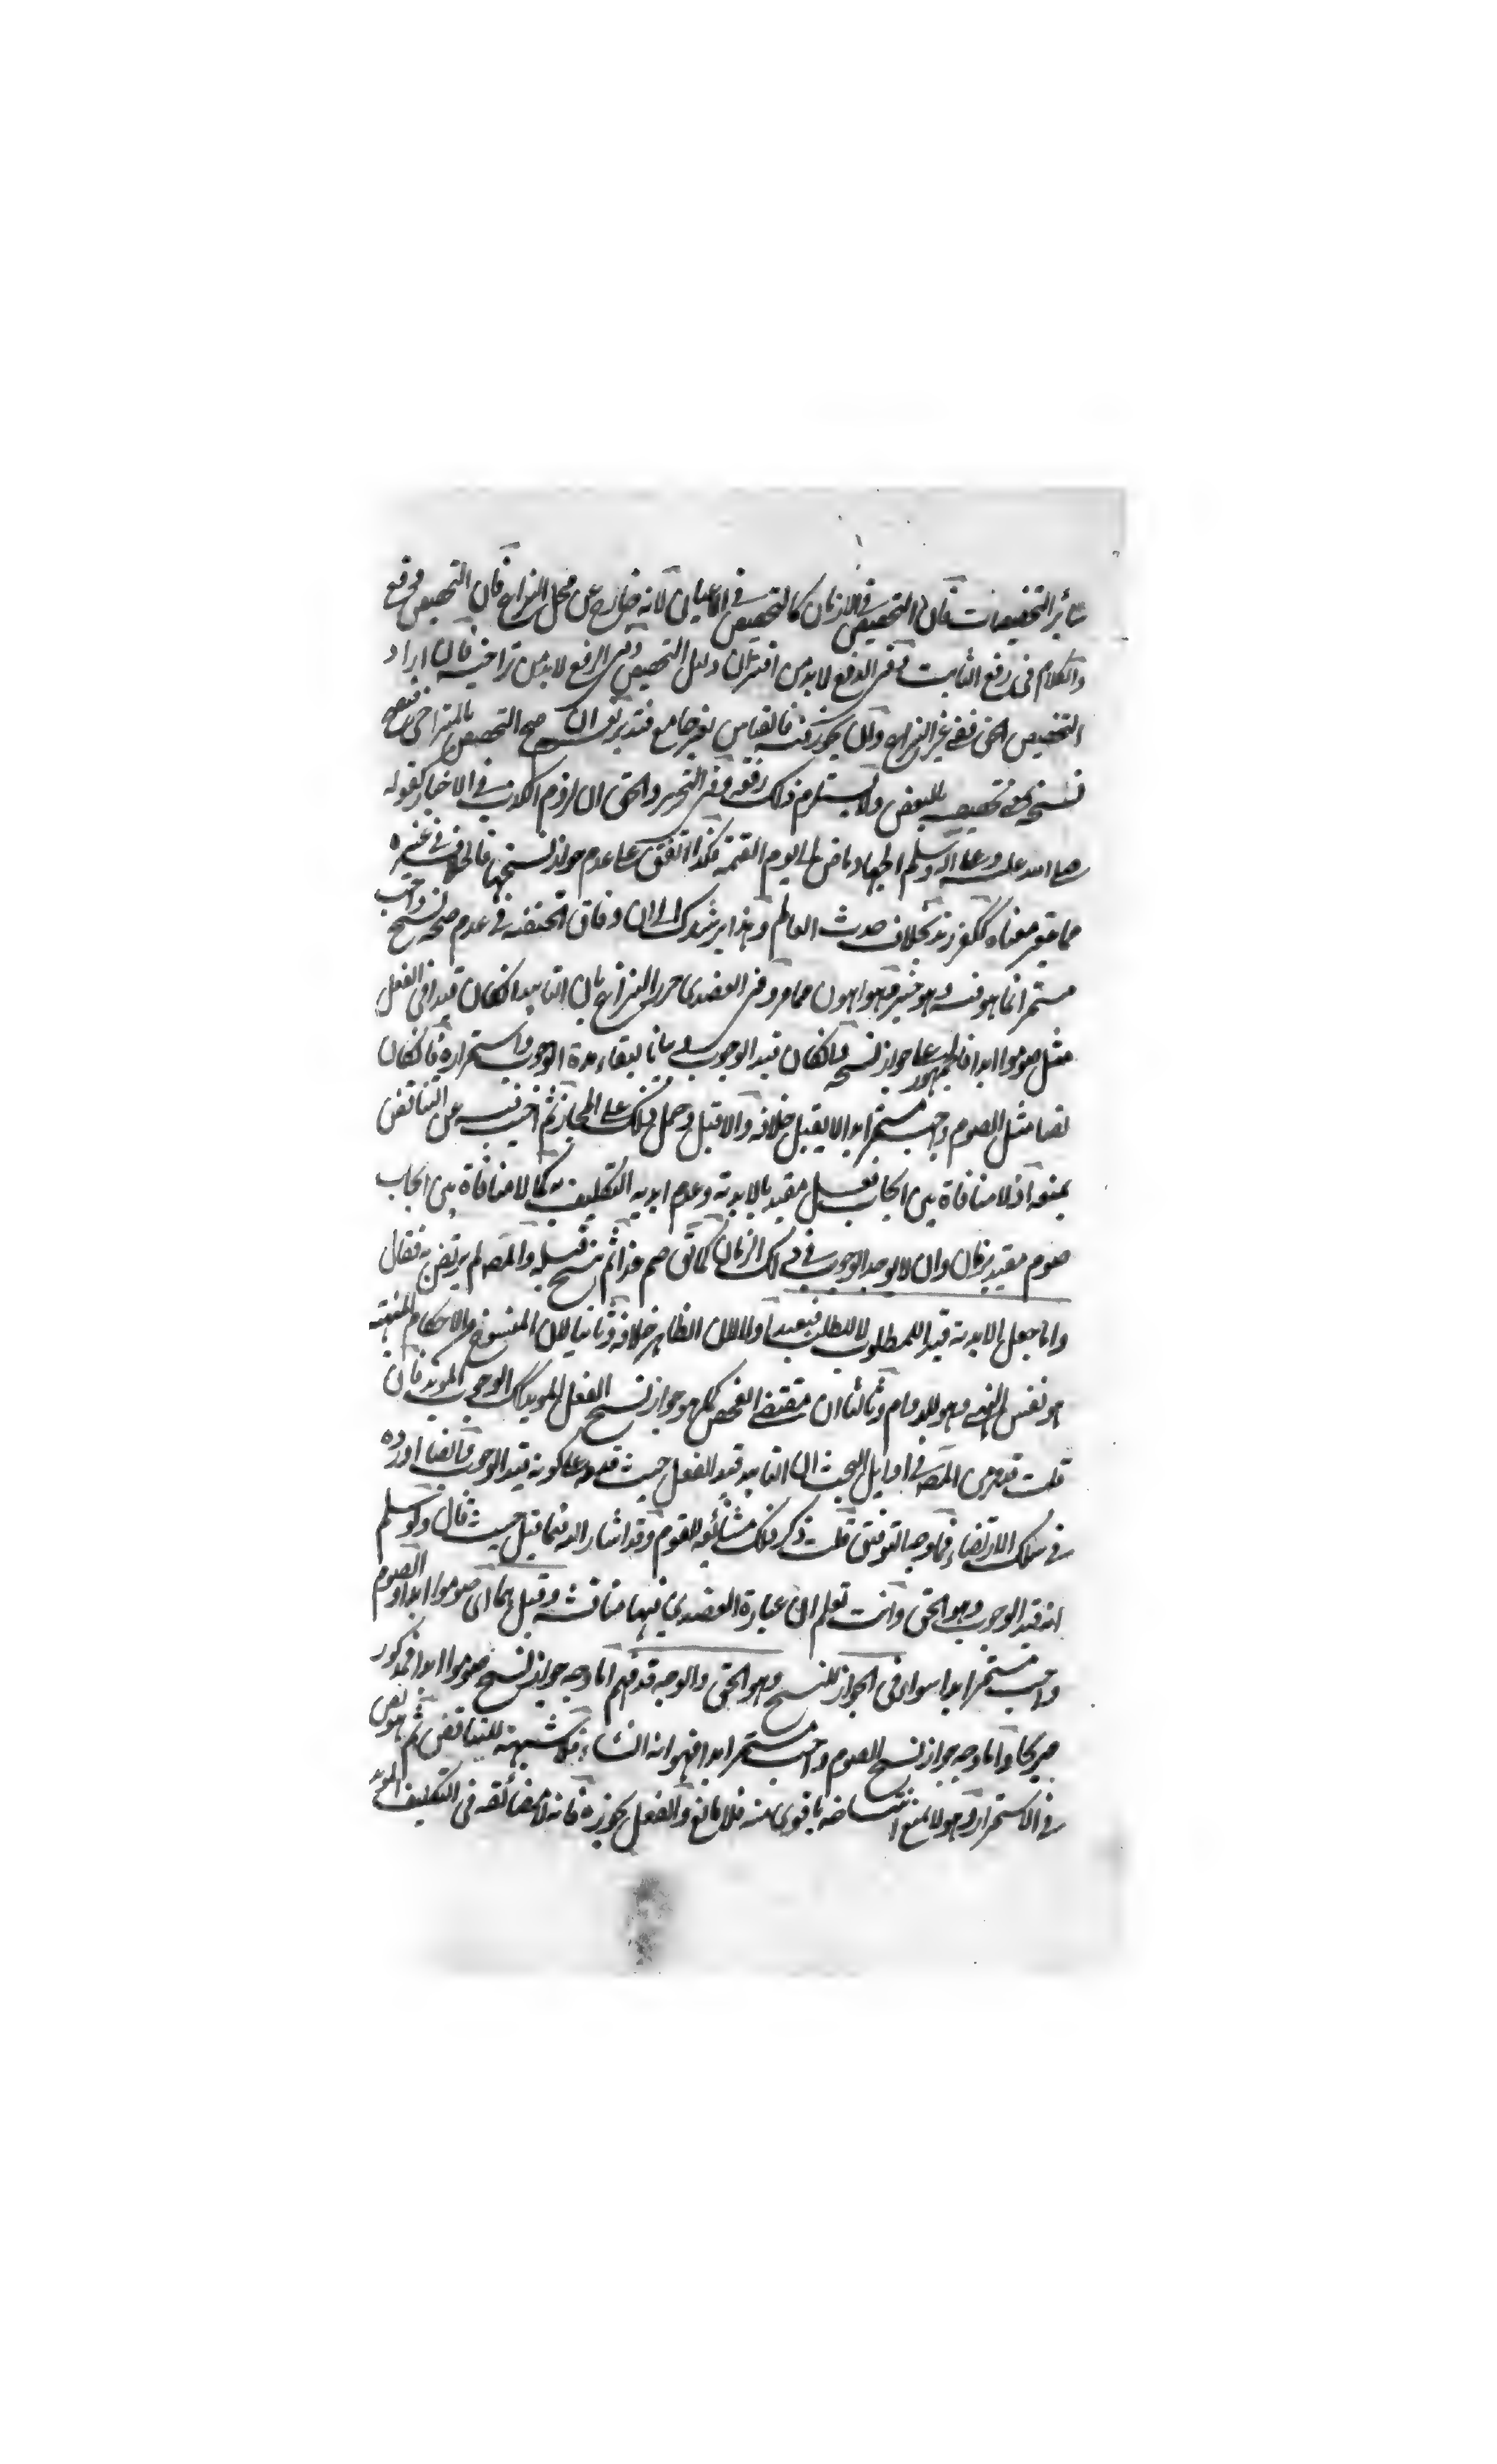 سائر التخصيصات فان التخصيص في الازمان كالتخصيص في الاعيان لانه خارج عن محل النزاع فان التخصيص دفع
والكلام في رفع الثابت وفي الدفع لا بد من اقتران دليل التخصيص وفي الرفع لا بد من تراخيه فان اراد
التخصيص ففي غير النزاع وان فالقياس بغير جامع فتدبر صح التخصيص بالمتراخي فيصح
نسخه تخصيصه بالبعض ولا يستلزم ذلك رفعه وفي التحرير والحق ان لزوم الكذب في الاخبار كقوله
صلى الله عليه وعلى اله وسلم الجهاد ماض الى يوم القيمة فلذا اتفق على عدم جواز نسخها فالخلاف في غيره
مما يتغير معناه ككفر زيد بخلاف حدث العالم وهذا يرشدك الى ان وفاق الحنفية في عدم صحة نسخ واجب
مستمر انما هو فيه وهو خبر فهو اهون مما مر وفي العضدي حرر النزاع بان التابيد ان كان قيدا في الفعل
مثل صوموا ابدا فالجمهور على جواز نسخه وان كان قيد الوجوب بيانا لبقاء مدة الوجوب واستمراره فان كان
نصا مثل الصوم واجب مستمر ابدا لا يقبل خلافه والا قبل وحمل ذلك على المجاز ثم اجيب فيه عن التناقض
بمنعه اذ لا منافاة بين ايجاب فعل مقيد بالابدية وعدم ابدية التكليف به كما لا منافاة بين ايجاب
صوم مقيد بزمان وان لا يوجد الوجوب في ذلك الزمان كما في صم غدا ثم نسخ قبله والمص لم يرتض به فقال
واما جعل الابدية قيدا للمطلوب لا للطلب فبعيد اولا لان الظاهر خلافه وثانيا لان المنسوخ والاحكام المنتهية
هو نفس النهي وهو للدوام وثالثا ان مقتضى الفحص كله هو جواز نسخ الفعل المؤبد كالوجوب المؤبد فان
قلت قد مر من المص في اوايل البحث ان التابيد قيد للفعل حيث قدمه على كونه قيد الوجوب وايضا اورده
في سلك الارتضاء فما وجه التوفيق قلت ذكر ذلك مشايعة للقوم وقد اشار اليه فيما قبل حيث قال ولو سلم
انه قيد الوجوب وهو الحق وانت تعلم ان عبارة العضدي فيها مناقشة وقيل هما اى صوموا ابدا والصوم
واجب مستمر ابدا سواء في الجواز للنسخ وهو الحق والوجه قد فهم اما وجه جواز نسخ صوموا ابدا فمذكور
صريحا واما وجه جواز نسخ الصوم واجب مستمر ابدا فهو انه انشاء فلا شبهة للتناقض ثم هو نص
في الاستمرار وهو لا يمنع انتساخه باقوى منه فلا مانع والفعل يجوزه فانه لا مضائقة في التكليف المؤبد